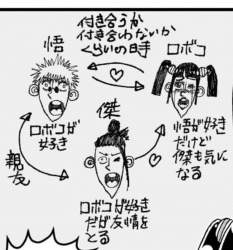 付き合うか
付き合わないか
くらいの日手
悟
ロボコ
ロボコが
好き
悟が好き
だけど
傑も気に
なる
親友
傑
ロボコが好き
だが友情を
とる